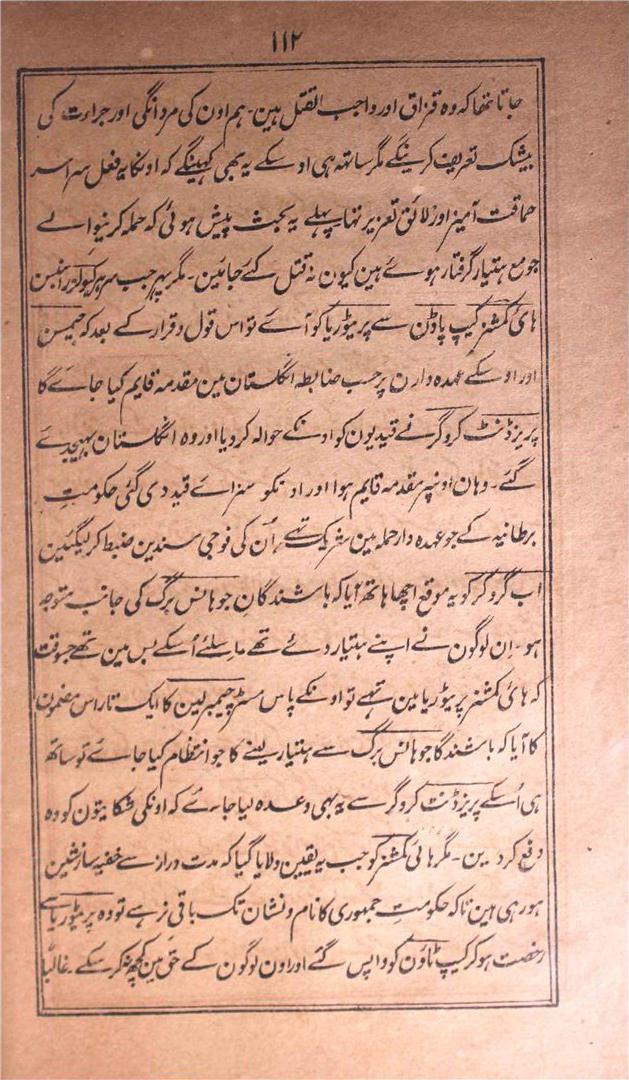 ۱۱۲
جاتا تھا کہ وہ قزاق اور واجب القتل ہین ۔ ہم اون کی مردانگی اور جراءت کی
بیشک تعریف کرینگے مگر ساتھ ہی اوسکے یہ بھی کہینگے کہ اونکا یہ فعل سراسر
حماقت آمیز اور لائق تعزیر تھا پہلے یہ بحث پیش ہوئی کہ حملہ کرنیوالے
جو مع ہتیار گرفتار ہوے ہین کیون نہ قتل کئے جائین ۔ مگر پھر جب سر ہرکیولیز رابنسن
ہائی کمشنر کیپ ٹاؤن سے پریٹوریا کو آے تو اس قول و قرار کے بعد کہ جیمسن
اور اوسکے عہدہ دارن پر حسب ضابطہ انگلستان مین مقدمہ قایم کیا جاے گا
پریزڈنٹ کروگر نے قیدیون کو اونکے حوالہ کردیا اور وہ انگلستان بھیجدے
گئے ۔ وہان اونپر مقدمہ قایم ہوا اور اونکو سزاے قید دی گئی حکومتِ
برطانیہ کے جو عہدہ دار حملہ مین شریک تھے اُن کی فوجی سندین ضبط کرلیگئین
اب کروگر کو یہ موقع اچھا ہاتھ آیا کہ باشندگانِ جوہانس برگ کی جانب متوجہ
ہو ۔ اِن لوگون نے اپنے ہتیار دئے تھے اسلئے اُسکے بس مین تھے جسوقت
کہ ہائی کمشنر پریٹوریا مین تھے تو اونکے پاس مسٹر چیمبرلین کا ایک تار اس مضمون
کا آیا کہ باشندگا جوہانس برگ سے ہتیار لینے کا جو انتظام کیا جاے تو ساتھ
ہی اُسکے پریزڈنٹ کروگر سے یہ بھی وعدہ لیا جاے کہ اونکی شکایتون کو وہ
دفع کردین ۔ مگر ہائی کمشنر کو جب یہ یقین دلایا گیا کہ مدت دراز سے خفیہ سازشین
ہورہی ہین تاکہ حکومتِ جمہوری کا نام و نشان تک باقی نرہے تو وہ پریٹوریا سے
رخصت ہوکر کیپ ٹاؤن کو واپس گئے اور اون لوگون کے حق مین کچھ نہ کرسکے ۔ غالباً